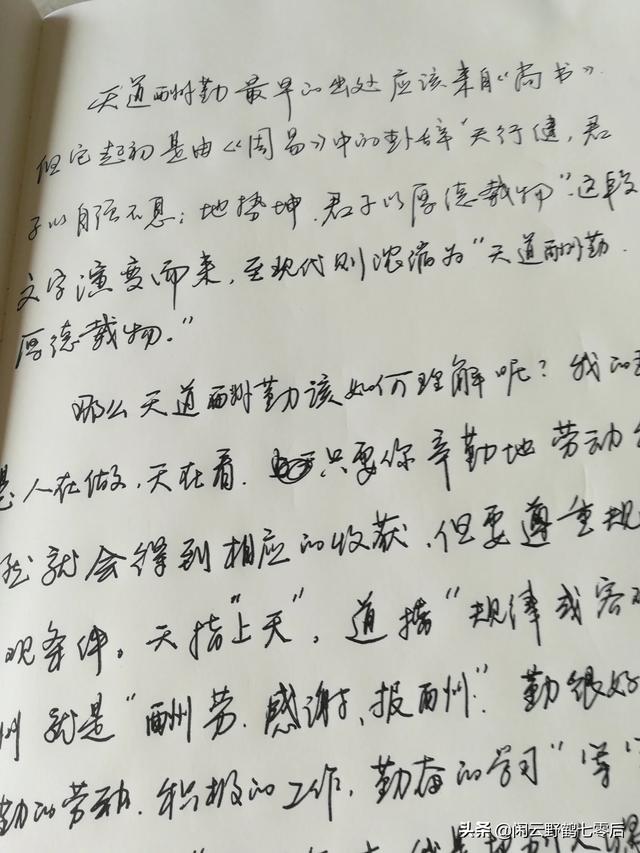 天道酬勤最早的出处应该来自《尚书》.
但它起初是由《周易》中的卦辞"天行健,君
子以自强不息;地势坤.君子以厚德载物".这段
文字演变而来,至现代则浓缩为"天道酬勤.
厚德载物."
那么天道酬勤该如何理解呢?我的
是人在做,天在看.只要你辛勤地劳动
然就会得到相应的收获,但要遵重规
观条件。天指"上天",道指"规律或客
就是"酬劳.感谢、报酬".勤很好
勤的劳动.积极的工作,勤奋的学习"等
头条 @闲云野鹤七零后